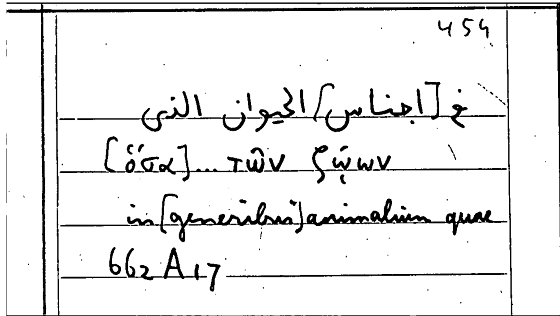 454
في [اجناس] الحيوان التى
[ὅσα]... τῶν ζῴων
in [generibus] animalium quae
662 A 17